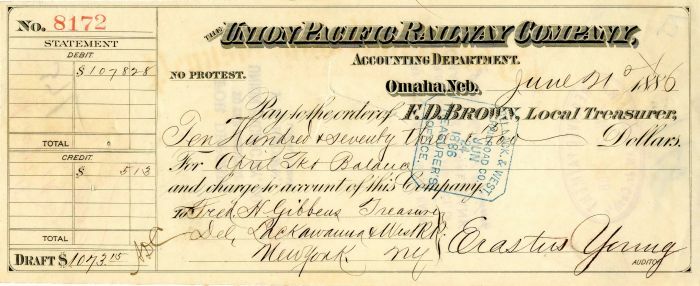 No. 8172
STATEMENT
DEBIT.
$1078 28
TOTAL
CREDIT.
$ 5 13
TOTAL
DRAFT $1073.15
THE UNION PACIFIC RAILWAY COMPANY,
ACCOUNTING DEPARTMENT.
NO PROTEST.
Omaha, Neb. June 21 1886
Pay to the order of F. D. BROWN, Local Treasurer,
Ten Hundred & seventy three Dollars.
For April Tkt Balance
and charge to account of this Company.
To Fred. H Gibbens Treasurer
Del, Lackawanna & West RR.
New York NY
Erastus Young
AUDITOR
LACK & WEST
RAILROAD CO.
JUN
24
1886
TREASURER'S
OFFICE.